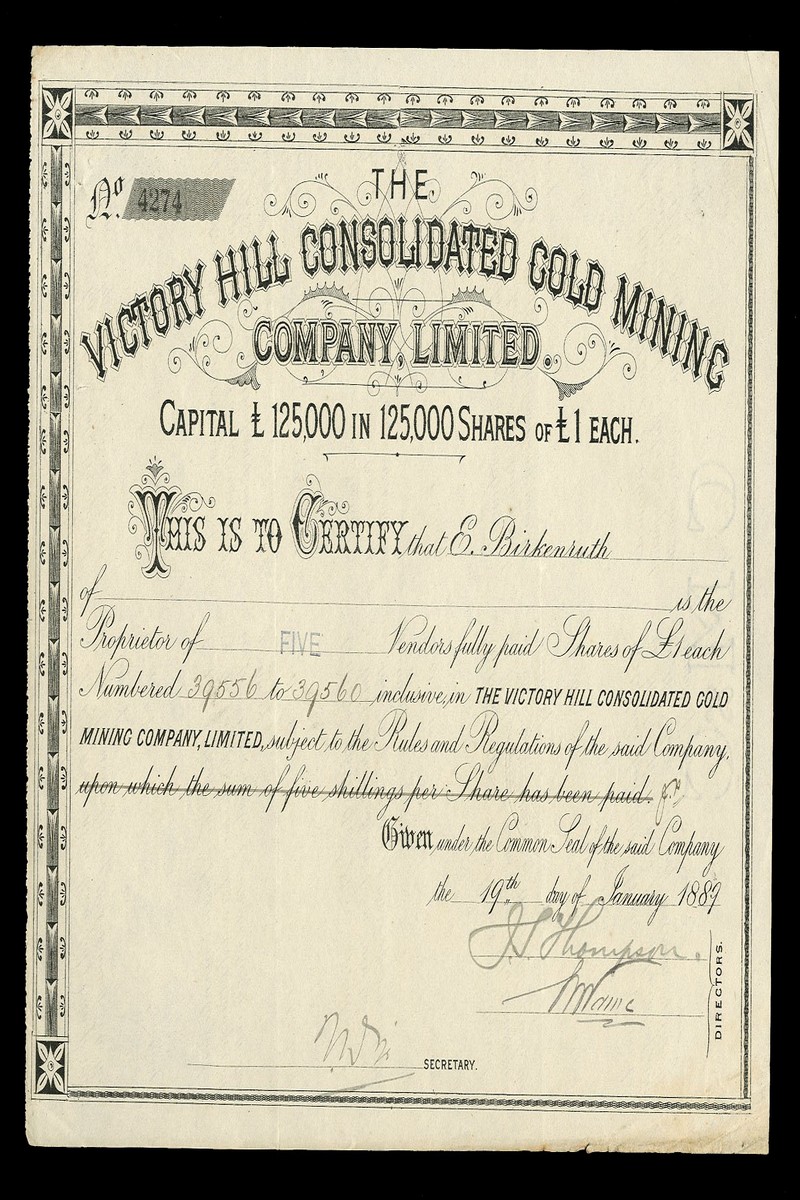 No. 4274
THE
VICTORY HILL CONSOLIDATED GOLD MINING
COMPANY, LIMITED.
CAPITAL £ 125,000 IN 125,000 SHARES OF £1 EACH.
THIS IS TO CERTIFY that E. Birkenruth
of is the
Proprietor of FIVE Vendors fully paid Shares of £1 each
Numbered 39556 to 39560 inclusive, in THE VICTORY HILL CONSOLIDATED GOLD
MINING COMPANY, LIMITED, subject to the Rules and Regulations of the said Company,
upon which the sum of five shillings per Share has been paid.
Given under the Common Seal of the said Company
the 19th day of January 1889
J S Thompson.
DIRECTORS.
SECRETARY.